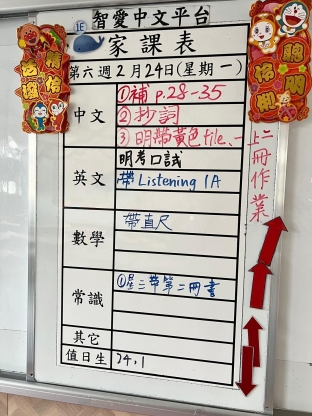 智愛中文平台
1E 家課表
第六週2月24日(星期一)
中文
①補 p.28-35
②抄詞
③明帶黃色file、一
上二冊作業
英文
明考口試
帶 Listening 1A
數學
帶直尺
常識
①星三帶第二冊書
其它
值日生 24,1
聰明
伶俐